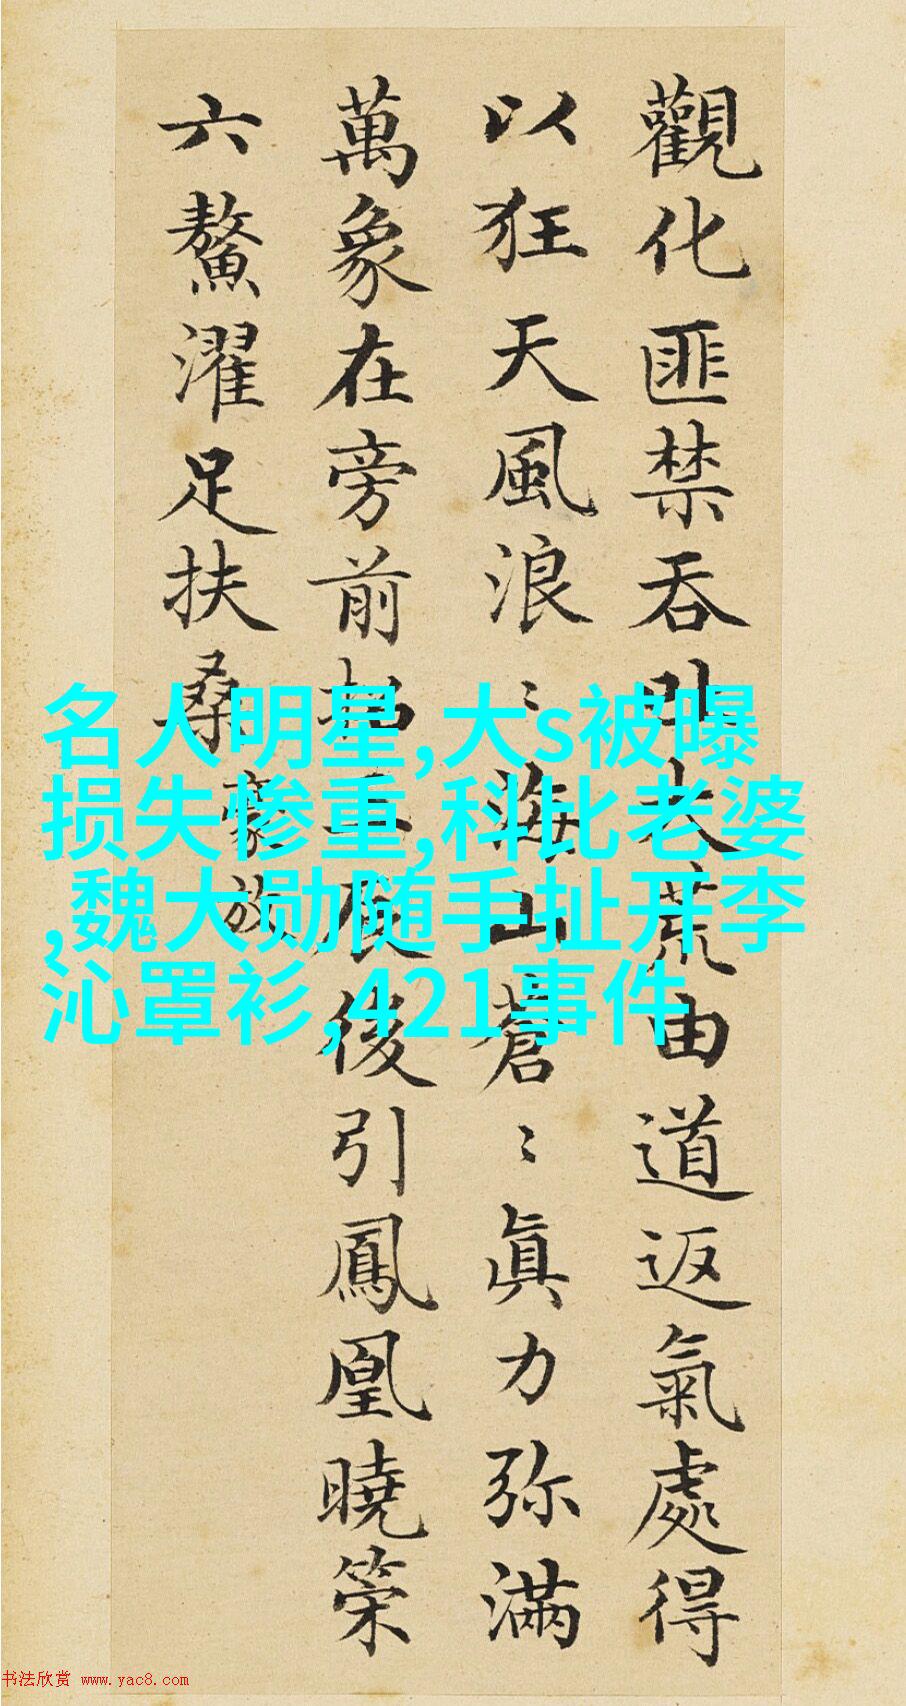 觀化匪禁吞吐大荒由道返氣處得
以狂天風浪〻海山蒼〻眞力弥滿
萬象在旁前招三辰後引鳳凰曉策
六鰲濯足扶桑
豪放
名人明星,大s被曝
损失惨重,科比老婆
,魏大勋随手扯开李
沁罩衫,421事件
书法欣赏 www.yac8.com